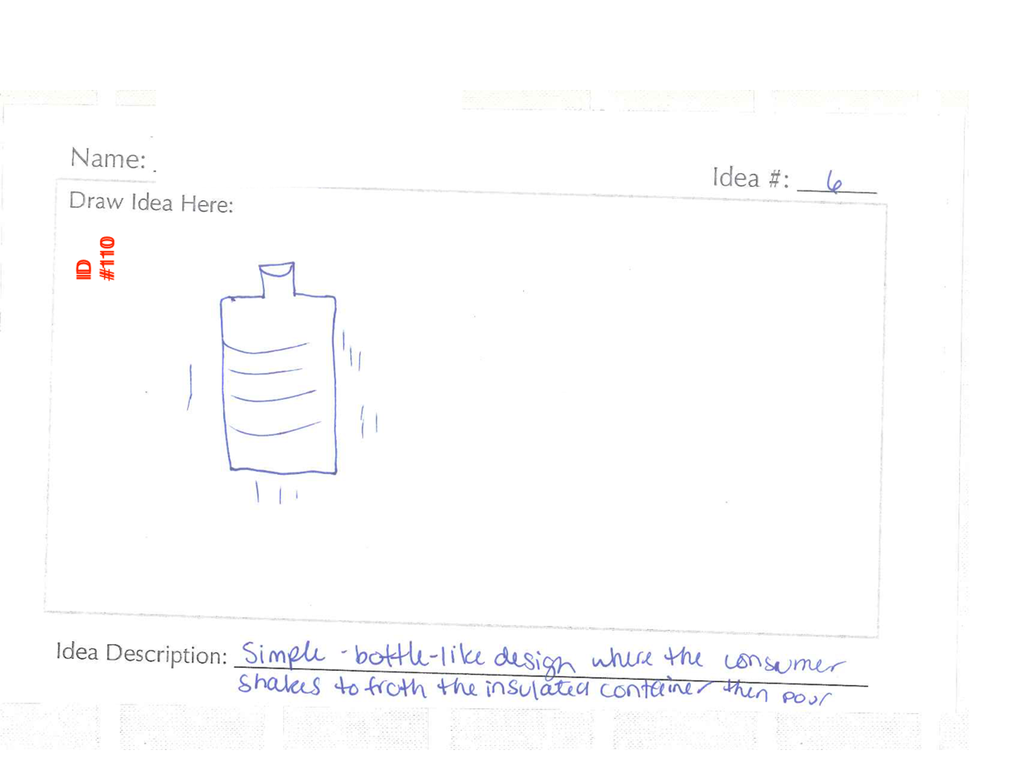 Name:
Idea #: 6
Draw Idea Here:
ID
#110
Idea Description: Simple - bottle-like design where the consumer
shakes to froth the insulated container then pour